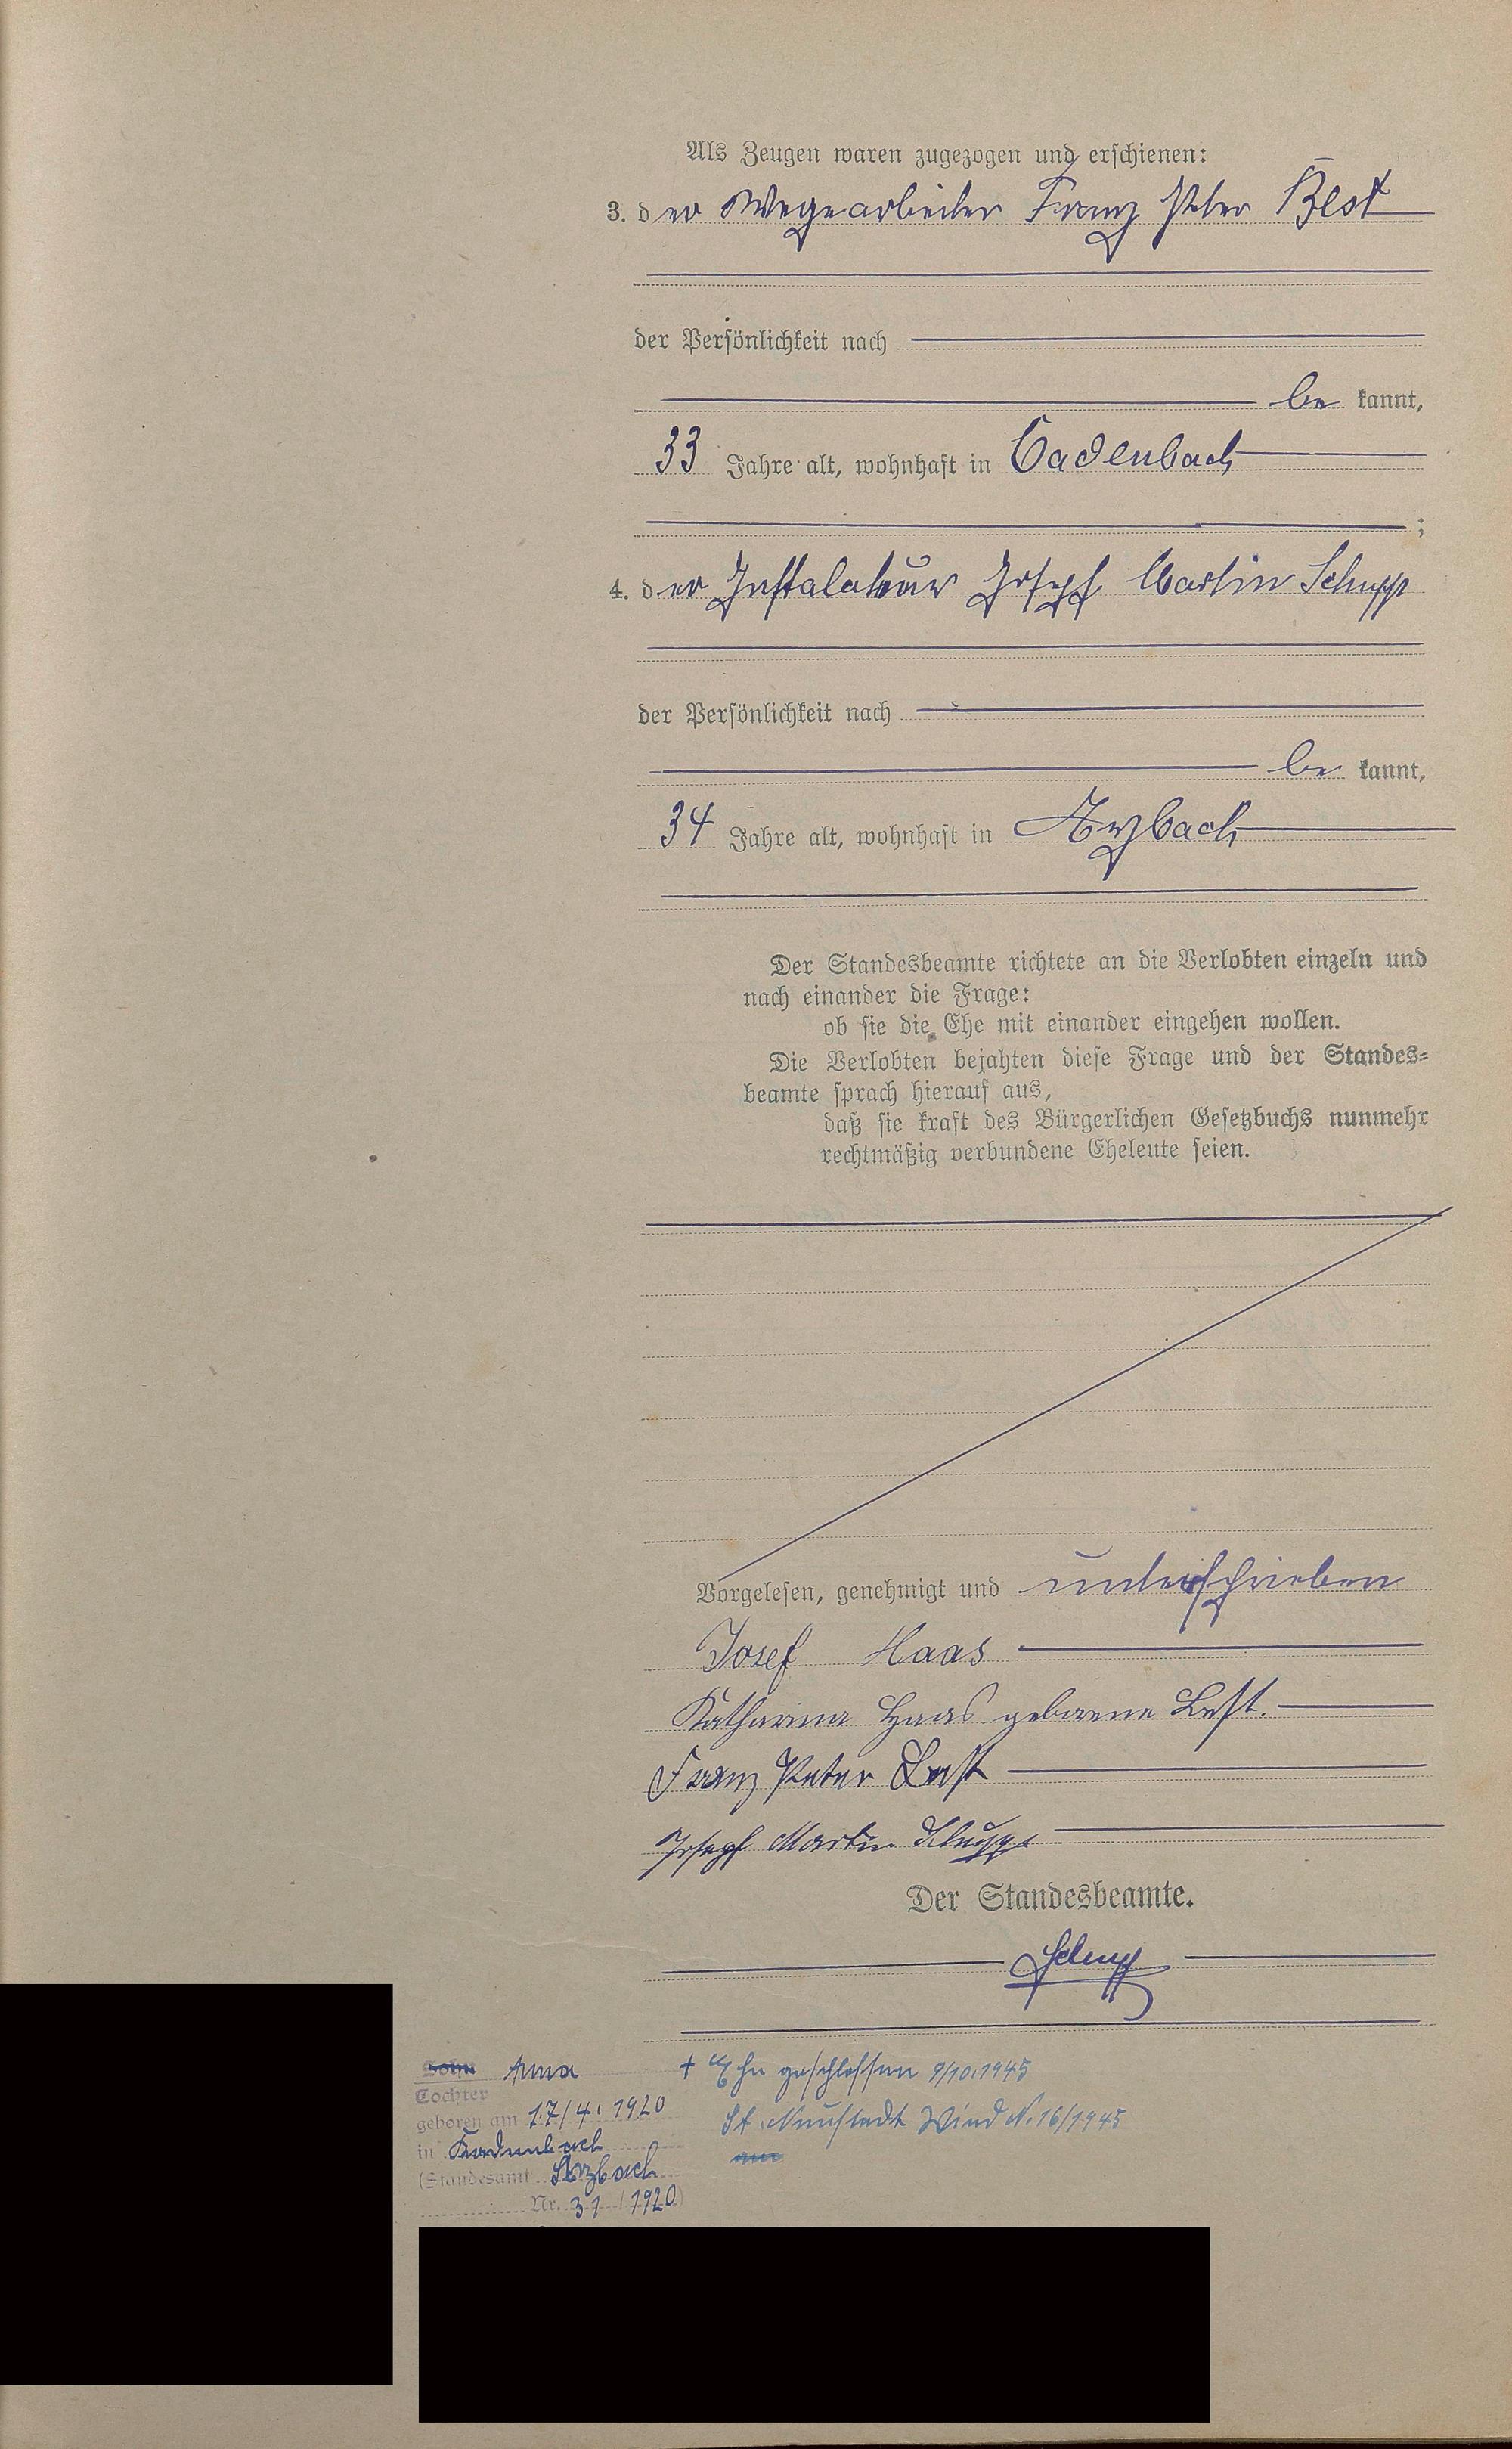 Als Zeugen waren zugezogen und erschienen:
3. der Wegearbeiter Franz Peter Best
der Persönlichkeit nach
be kannt,
33 Jahre alt, wohnhaft in Cadenbach
;
4. der Installateur Joseph Martin Schupp
der Persönlichkeit nach
be kannt,
34 Jahre alt, wohnhaft in Arzbach
Der Standesbeamte richtete an die Verlobten einzeln und
nach einander die Frage:
ob sie die Ehe mit einander eingehen wollen.
Die Verlobten bejahten diese Frage und der Standes=
beamte sprach hierauf aus,
daß sie kraft des Bürgerlichen Gesetzbuchs nunmehr
rechtmäßig verbundene Eheleute seien.
Vorgelesen, genehmigt und unterschrieben
Josef Haas
Katharina Haas geborene Best.
Franz Peter Best
Joseph Martin Schupp
Der Standesbeamte.
Schupp
Sohn Anna
Tochter
geboren am 17/4. 1920
in Kadenbach
(Standesamt Arzbach
Nr. 31/1920)
+ Ehe geschlossen 9/10.1945
St. Neustadt Wied N. 16/1945